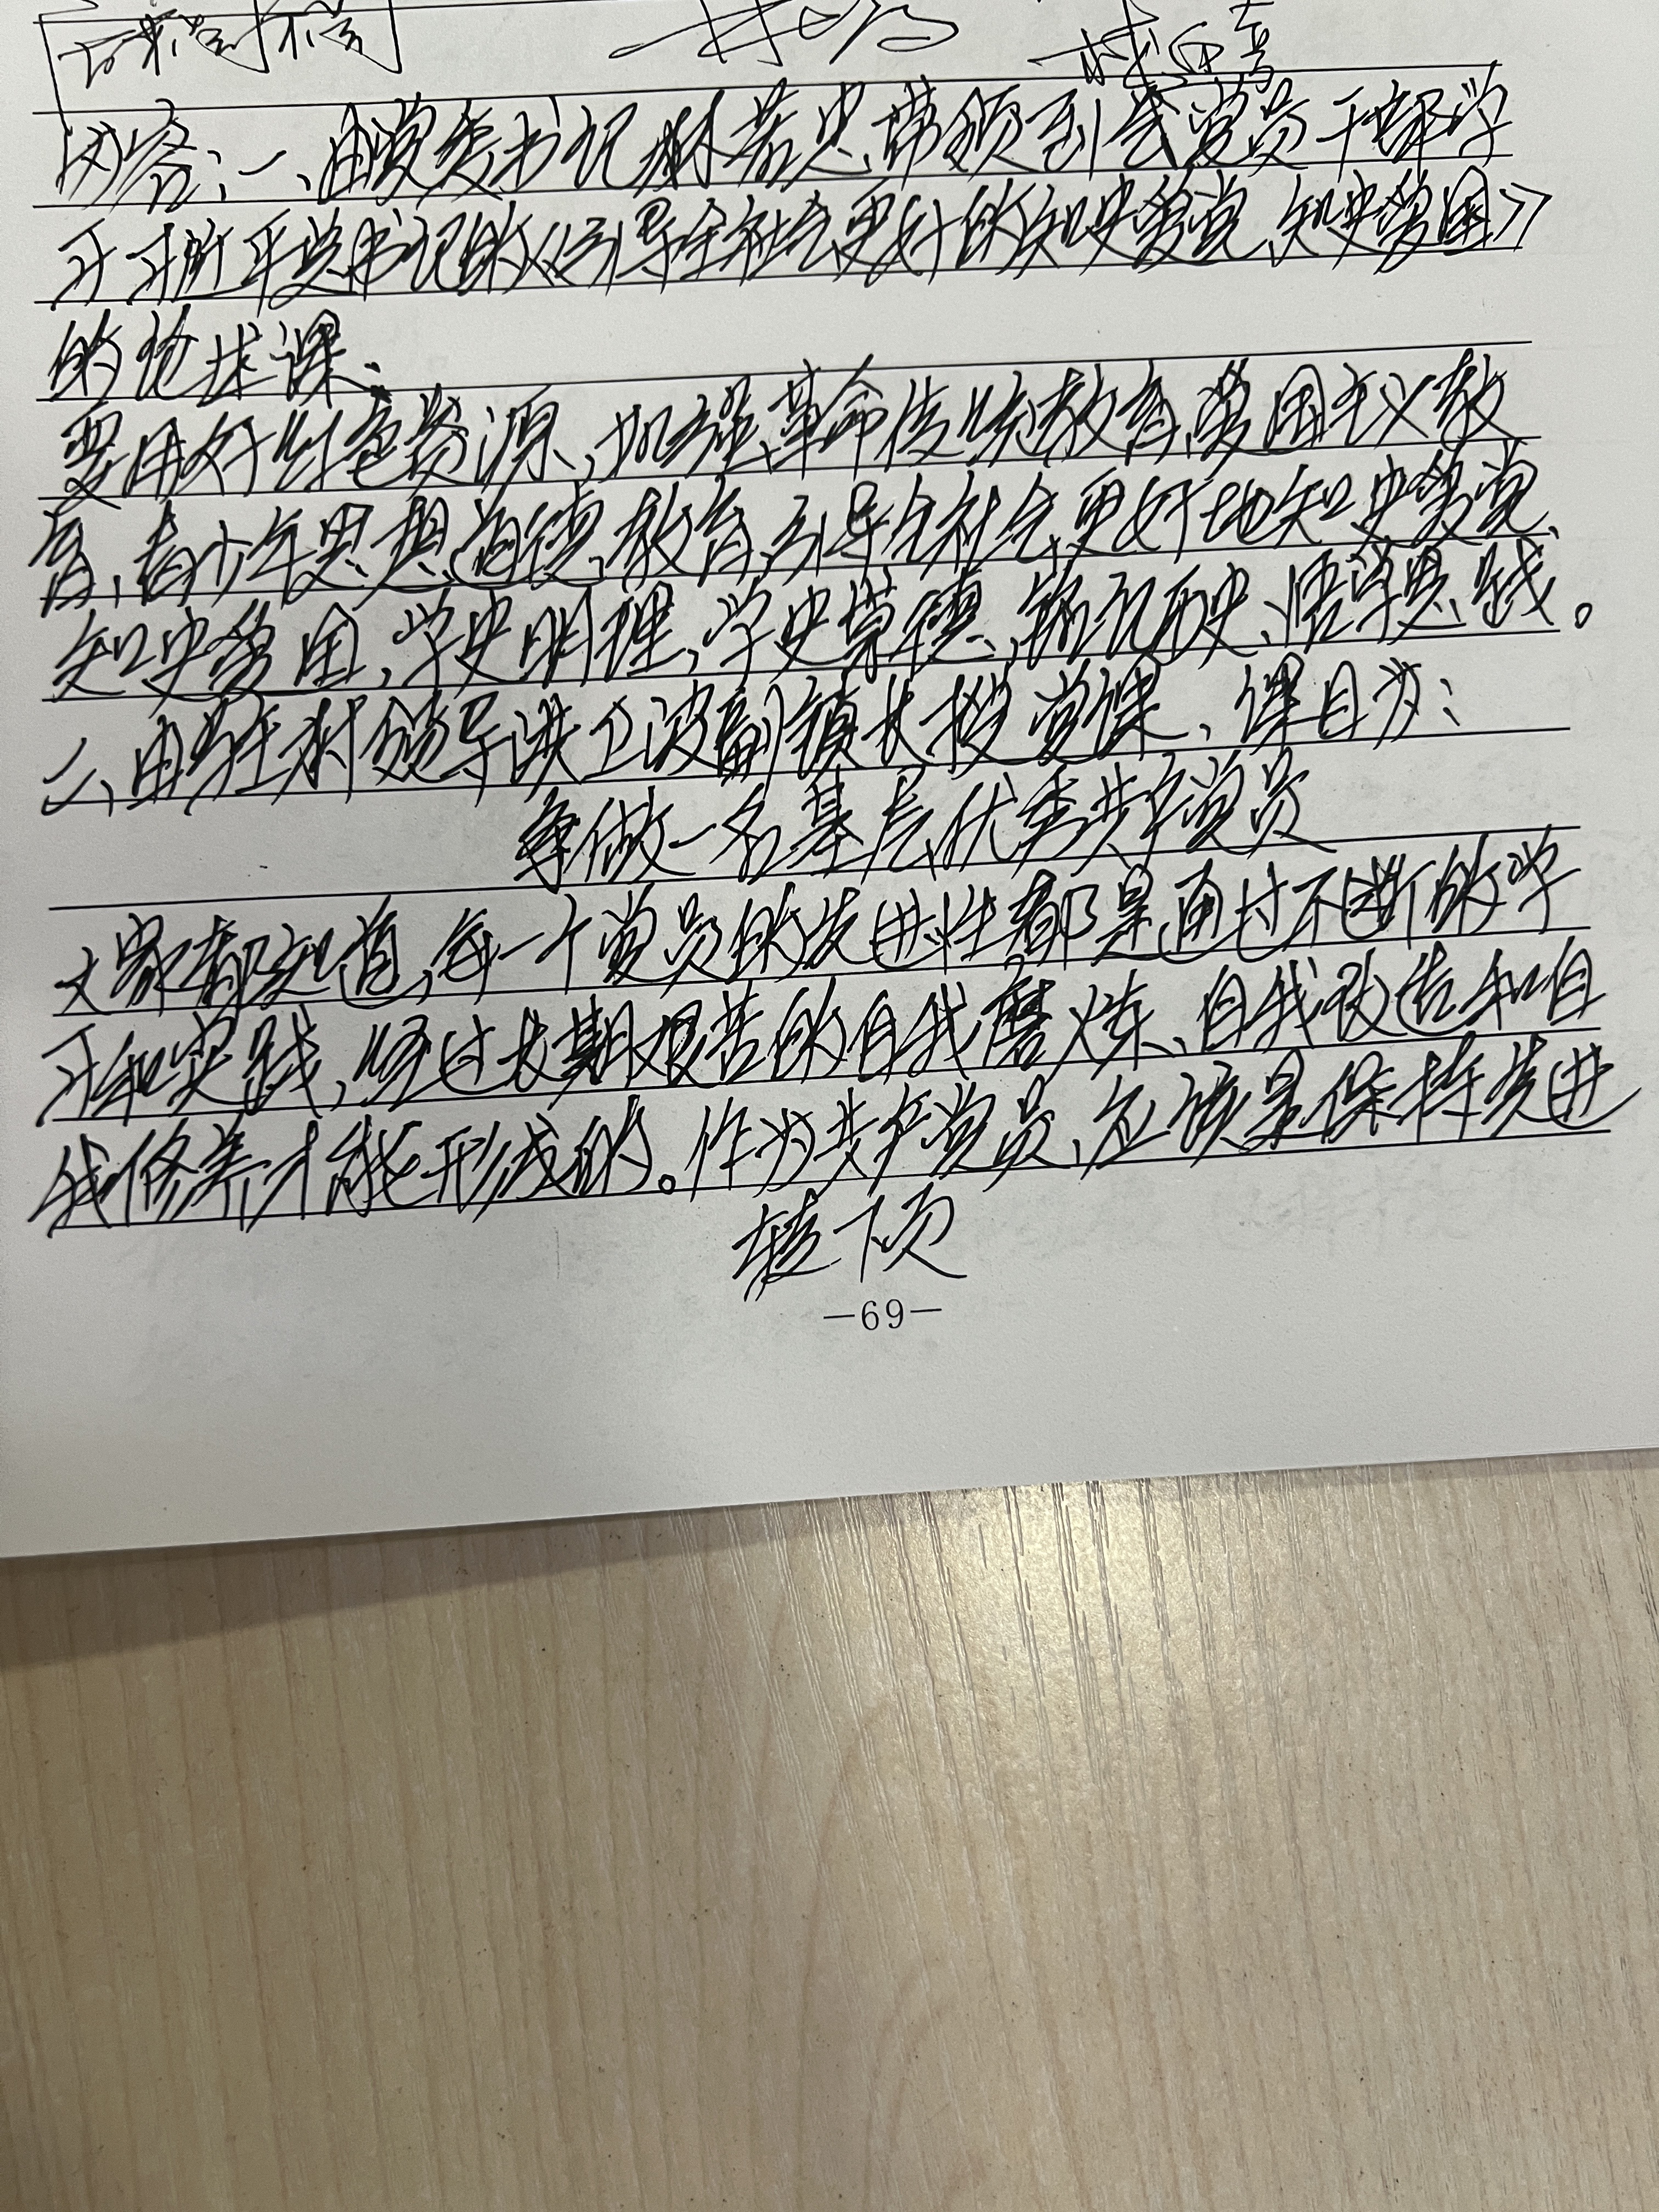 内容：一、由党委书记林若忠带领到会党员干部学
习习近平总书记的《引导全社会更好的知史爱党、知史爱国》
的党课。
要用好红色资源，加强革命传统教育、爱国主义教
育、青少年思想道德教育，引导全社会更好地知史爱党、
知史爱国，学史明理，学史崇德，铭记历史、悟学思践。
二、由驻村领导洪卫波副镇长授党课、课目为：
争做一名基层优秀共产党员
大家都知道，每一个党员的先进性都是通过不断的学
习和实践，经过长期艰苦的自我磨炼、自我改造和自
我修养才能形成的。作为共产党员，应该是保持先进
转下页
—69—